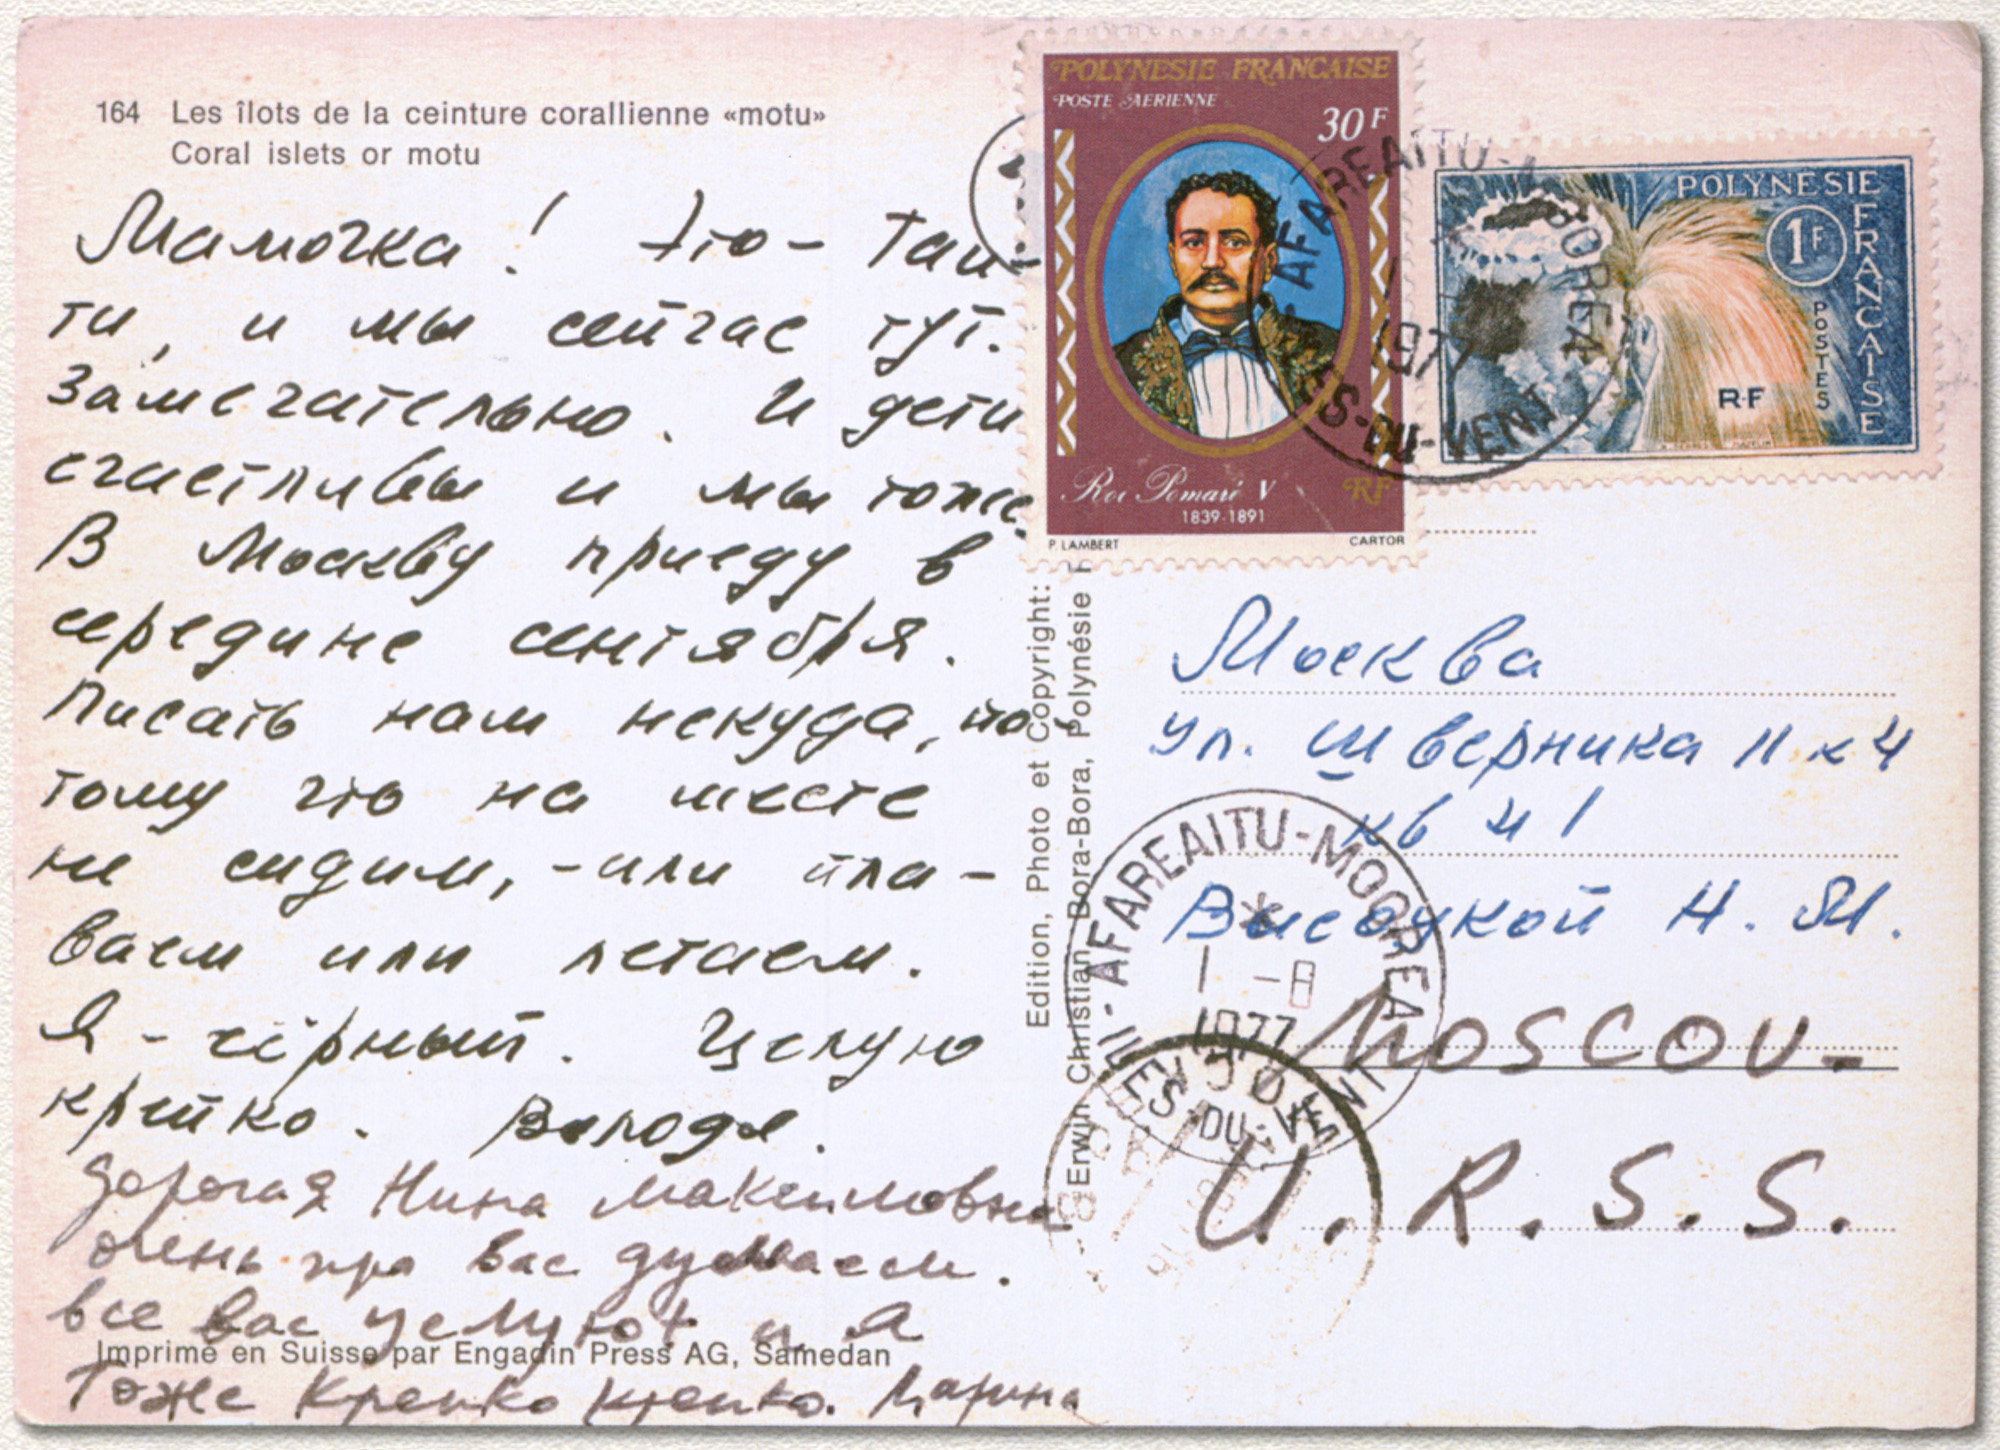 164 Les îlots de la ceinture corallienne «motu»
Coral islets or motu
Мамочка! Это - Таи-
ти, и мы сейчас тут.
Замечательно. И дети
счастливы и мы тоже.
В Москву приеду в
середине сентября.
Писать нам некуда, по-
тому что на месте
не сидим, - или пла-
ваем или летаем.
Я - чёрный. Целую
крепко. Володя.
Дорогая Нина Максимовна
очень про вас думаем.
все вас целуют и я
Imprimé en Suisse par Engadin Press AG, Samedan
Тоже Крепко крепко. Марина
Edition, Photo et Copyright:
Erwin Christian, Bora-Bora, Polynésie
POLYNESIE FRANCAISE
POSTE AERIENNE
30F
Roi Pomaré V
1839-1891
RF
P. LAMBERT
CARTOR
POLYNÉSIE
FRANÇAISE
1F
POSTES
RF
AFAREAITU-MOOREA
1977
ES-DU-VENT
Москва
ул. Шверника 11 к 4
кв 41
Высоцкой Н. М.
MOSCOU-
U.R.S.S.
AFAREAITU-MOOREA
1 -8
1977
ILES-DU-VENT